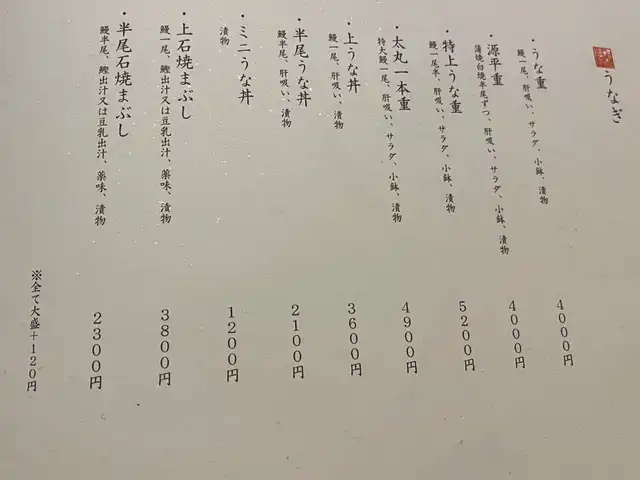 うなぎ
・うな重
鰻一尾、肝吸い、サラダ、小鉢、漬物
4000円
・源平重
蒲焼白焼半尾ずつ、肝吸い、サラダ、小鉢、漬物
4000円
・特上うな重
鰻一尾半、肝吸い、サラダ、小鉢、漬物
5200円
・太丸一本重
特大鰻一尾、肝吸い、サラダ、小鉢、漬物
4900円
・上うな丼
鰻一尾、肝吸い、漬物
3600円
・半尾うな丼
鰻半尾、肝吸い、漬物
2100円
・ミニうな丼
漬物
1200円
・上石焼まぶし
鰻一尾、鰹出汁又は豆乳出汁、薬味、漬物
3800円
・半尾石焼まぶし
鰻半尾、鰹出汁又は豆乳出汁、薬味、漬物
2300円
※全て大盛+120円